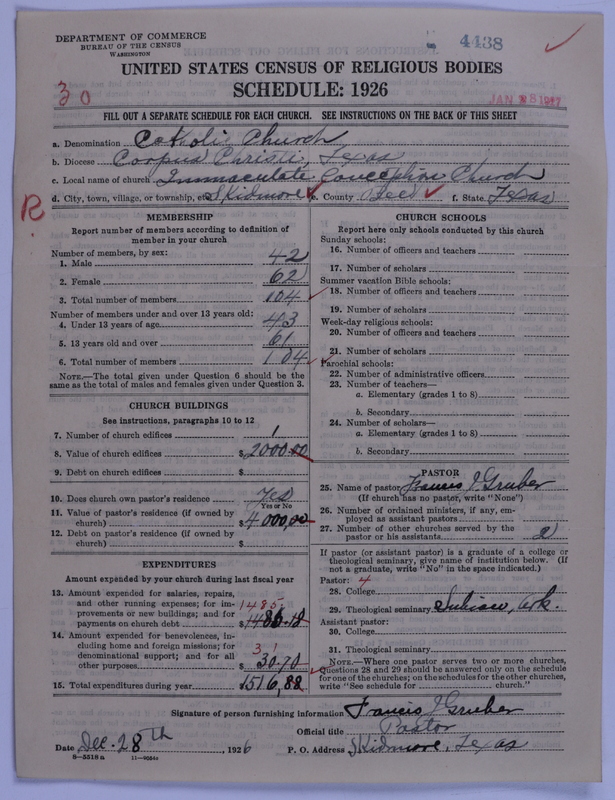 4438
DEPARTMENT OF COMMERCE
BUREAU OF THE CENSUS
WASHINGTON
UNITED STATES CENSUS OF RELIGIOUS BODIES
SCHEDULE: 1926
30
FILL OUT A SEPARATE SCHEDULE FOR EACH CHURCH. SEE INSTRUCTIONS ON THE BACK OF THIS SHEET
a. Denomination Catholic Church
b. Diocese Corpus Christi, Texas
c. Local name of church Immaculate Conception Church
d. City, town, village, or township, etc. Skidmore e. County Bee f. State Texas
R
MEMBERSHIP
Report number of members according to definition of
member in your church
Number of members, by sex:
1. Male 42
2. Female 62
3. Total number of members 104
Number of members under and over 13 years old:
4. Under 13 years of age 43
5. 13 years old and over 61
6. Total number of members 104
NOTE.—The total given under Question 6 should be
same as the total of males and females given under Question 3.
CHURCH BUILDINGS
See instructions, paragraphs 10 to 12
7. Number of church edifices 1
8. Value of church edifices $2000.00
9. Debt on church edifices $
10. Does church own pastor's residence Yes
Yes or No
11. Value of pastor's residence (if owned by
church) $4000,00
12. Debt on pastor's residence (if owned by
church) $
EXPENDITURES
Amount expended by your church during last fiscal year
13. Amount expended for salaries, repairs,
and other running expenses; for im-
provements on new buildings; and for
payments on church debt $1486.18
1485
14. Amount expended for benevolences, in-
cluding home and foreign missions; for
denominational support; and for all
other purposes $30.70
31
15. Total expenditures during year $1516,88
CHURCH SCHOOLS
Report here only schools conducted by this church
Sunday schools:
16. Number of officers and teachers
17. Number of scholars
Summer vacation Bible schools:
18. Number of officers and teachers
19. Number of scholars
Week-day religious schools:
20. Number of officers and teachers
21. Number of scholars
Parochial schools:
22. Number of administrative officers
23. Number of teachers—
a. Elementary (grades 1 to 8)
b. Secondary
24. Number of scholars—
a. Elementary (grades 1 to 8)
b. Secondary
PASTOR
25. Name of pastor Francis J Gruber
(If church has no pastor, write "None")
26. Number of ordained ministers, if any, em-
ployed as assistant pastors
27. Number of other churches served by the
pastor or his assistants 2
If pastor (or assistant pastor) is a graduate of a college or
theological seminary, give name of institution below. (If
not a graduate, write "No" in the space indicated.)
Pastor: 4
28. College
29. Theological seminary Subiaco, Ark.
Assistant pastor:
30. College
31. Theological seminary
NOTE.—Where one pastor serves two or more churches,
Questions 28 and 29 should be answered only on the schedule
for one of the churches; on the schedules for the other churches,
write "See schedule for church."
Signature of person furnishing information Francis J Gruber
Official title Pastor
Date Dec. 28th, 1926 P. O. Address Skidmore, Texas